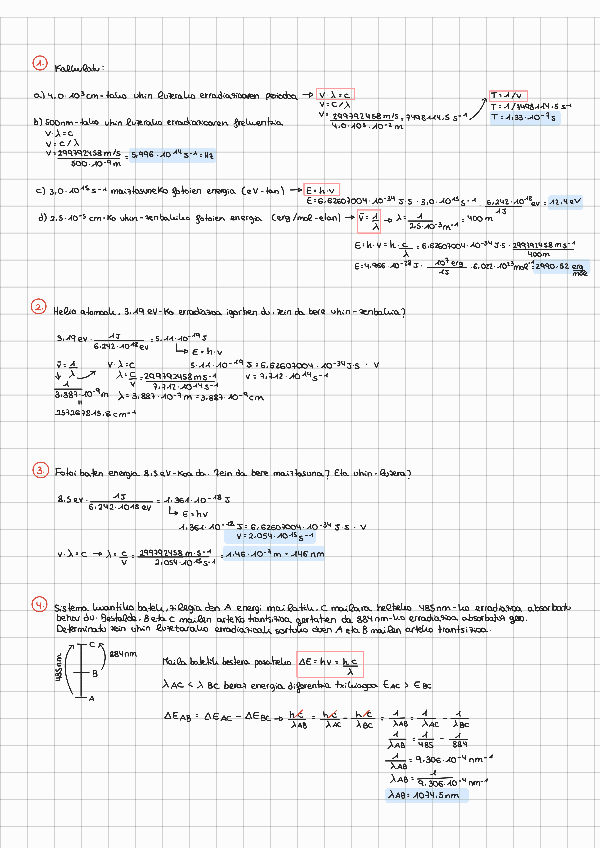 1. Kalkulatu:
a) 4,0·10³ cm-tako uhin luzerako erradiazioaren periodoa → ν·λ=c
ν=c/λ
ν= 299792458 m/s / 4,0·10³·10⁻² m = 7494814,5 s⁻¹
T=1/ν
T=1/7494814,5 s⁻¹
T=1,33·10⁻⁷ s
b) 500nm-tako uhin luzerako erradiazioaren frekuentzia
ν·λ=c
ν=c/λ
ν= 299792458 m/s / 500·10⁻⁹ m = 5,996·10¹⁴ s⁻¹=Hz
c) 3,0·10¹⁵ s⁻¹ maiztasuneko fotoien energia (eV-tan) → E=h·ν
E=6,62607004·10⁻³⁴ J·s·3,0·10¹⁵ s⁻¹· 6,242·10¹⁸ eV / 1J = 12,4 eV
d) 2,5·10⁻⁵ cm-ko uhin-zenbakiko fotoien energia (erg/mol-etan) → ν̄= 1/λ → λ= 1 / 2,5·10⁻³ m⁻¹ = 400 m
E=h·ν=h· c/λ = 6,62607004·10⁻³⁴ J·s· 299792458 m s⁻¹ / 400m
E=4,966·10⁻²⁸ J· 10⁷ erg / 1J · 6,022·10²³ mol⁻¹=2990,52 erg/mol
2. Helio atomoak, 3,19 eV-ko erradiazioa igortzen du. Zein da bere uhin-zenbakia?
3,19 eV· 1J / 6,242·10¹⁸ eV = 5,11·10⁻¹⁹ J
↳ E=h·ν
ν̄= 1/λ ν·λ=c 5,11·10⁻¹⁹ J=6,62607004·10⁻³⁴ J·s · ν
λ= c/ν = 299792458 m s⁻¹ / 7,712·10¹⁴ s⁻¹ ν=7,712·10¹⁴ s⁻¹
1 / 3,887·10⁻⁹ m λ=3,887·10⁻⁷ m=3,887·10⁻⁹ cm
257267815,6 cm⁻¹
3. Fotoi baten energia 8,5 eV-koa da. Zein da bere maiztasuna? Eta uhin-luzera?
8,5 eV· 1J / 6,242·10¹⁸ eV = 1,361·10⁻¹⁸ J
↳ E=hν
1,361·10⁻¹⁸ J=6,62607004·10⁻³⁴ J·s · ν
ν=2,054·10¹⁵ s⁻¹
ν·λ=c → λ= c/ν = 299792458 m·s⁻¹ / 2,054·10¹⁵ s⁻¹ = 1,46·10⁻⁷ m=146 nm
4. Sistema kuantiko batek, zilegia den A energi mailatik, C mailara heltzeko 485nm-ko erradiazioa absorbatu
behar du. Bestalde, B eta C mailen arteko trantsizioa gertatzen da 884 nm-ko erradiazioa absorbatuz gero.
Determinatu zein uhin luzeratarako erradiazioak sortuko duen A eta B mailen arteko trantsizioa.
C
884nm
485nm
B
A
Maila batetik bestera pasatzeko ΔE=hν= h·c/λ
λAC < λBC beraz energia diferentzia txikiagoa EAC > EBC
ΔEAB = ΔEAC − ΔEBC → h·c/λAB = h·c/λAC − h·c/λBC = 1/λAB = 1/λAC − 1/λBC
1/λAB = 1/485 − 1/884
1/λAB = 9,306·10⁻⁴ nm⁻¹
λAB= 1 / 9,306·10⁻⁴ nm⁻¹
λAB= 1074,5 nm